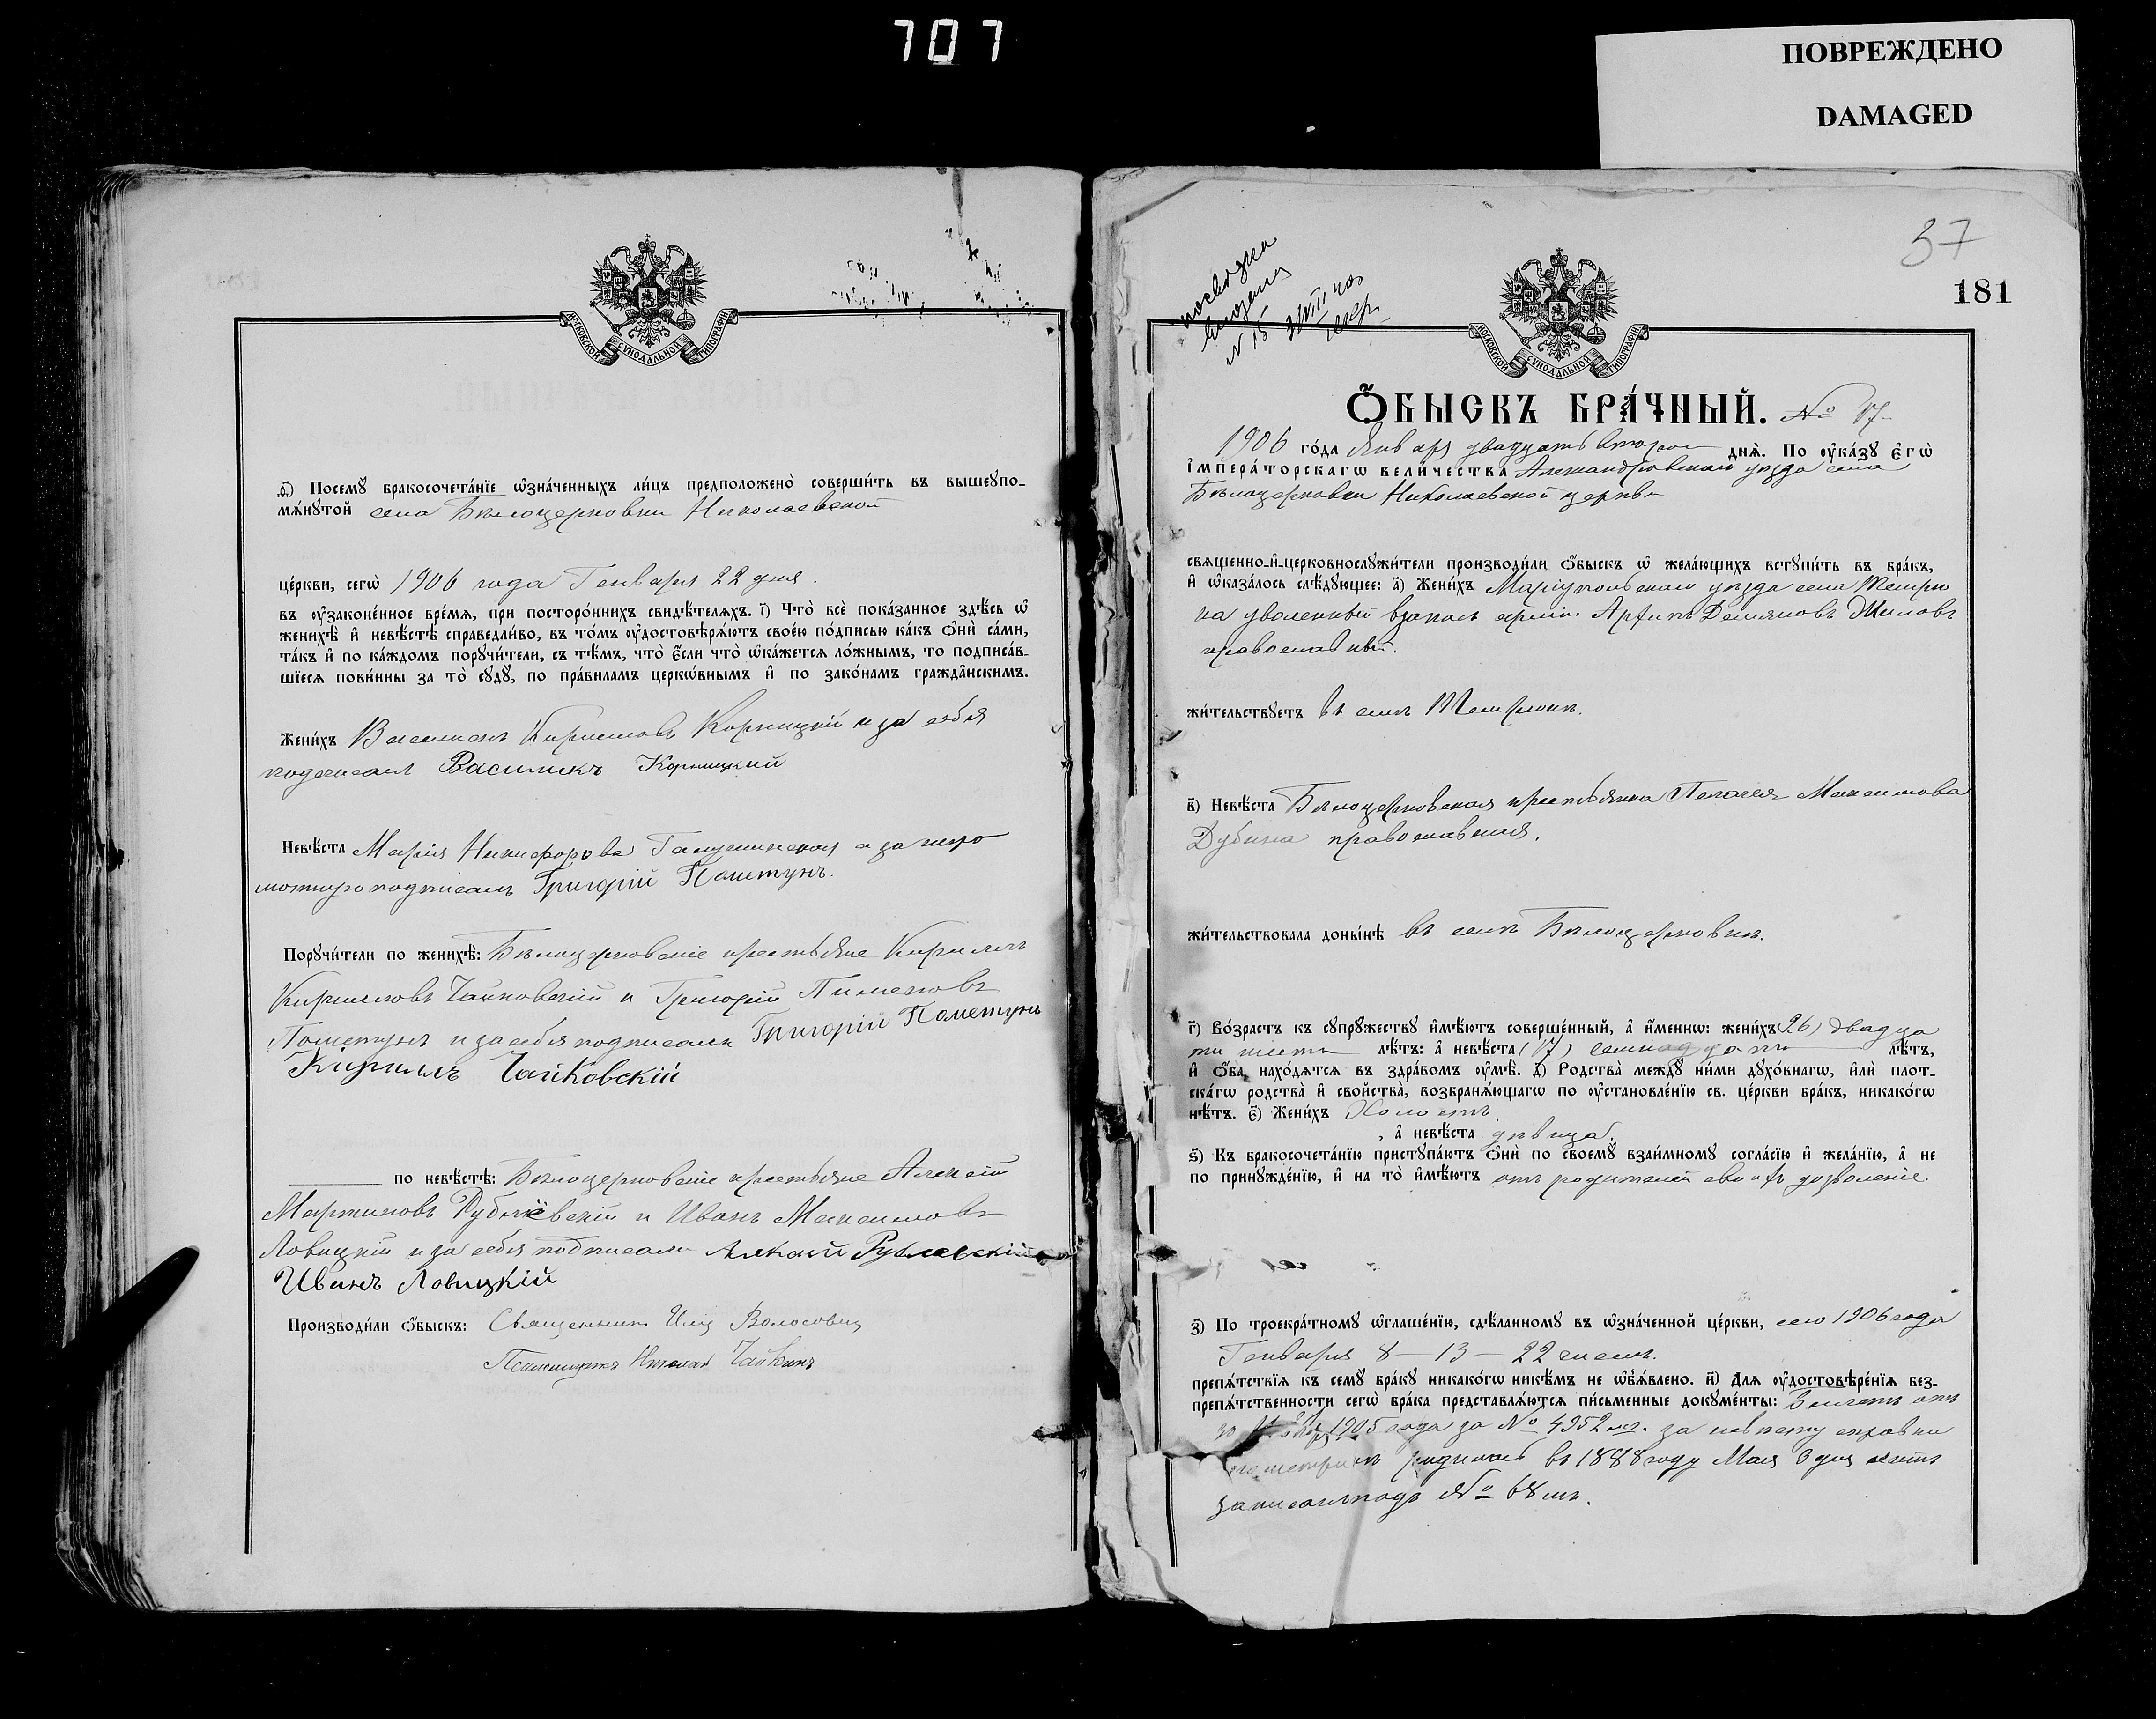 707
ПОВРЕЖДЕНО
DAMAGED
МОСКОВСКОЙ СѴНОДАЛЬНОЙ ТИПОГРАФІИ
Посемꙋ̀ бракосочета́нїе ѡ҆зна́ченныхъ ли́цъ предположено̀ соверши́ть въ вышеꙋпо-
мѧ́нꙋтой села Бѣлоцерковки Николаевской
це́ркви, сегѡ̀ 1906 года Генваря 22 дня.
въ ᲂу҆законе́нное вре́мѧ, при посторо́ннихъ свидѣ́телѧхъ. і҃) Что̀ всѐ пока́занное здѣ́сь ѡ҆
женихѣ̀ и҆ невѣ́стѣ справедли́во, въ то́мъ ᲂу҆достовѣрѧ́ютъ свое́ю по́дписью ка́къ ѻ҆нѝ са́ми,
та́къ и҆ по ка́ждомъ порꙋчи́тели, съ тѣ́мъ, что̀ є҆́сли что̀ ѡ҆ка́жетсѧ ло́жнымъ, то подписа́в-
шїесѧ пови́нны за то̀ сꙋдꙋ̀, по пра́виламъ церко́внымъ и҆ по зако́намъ гражда́нскимъ.
Жени́хъ Василискъ Кириловъ Корницкій и за себя
подписалъ Василискъ Корницкий
Невѣ́ста Марія Никифорова а за негра
мотную подписалъ Григорій Пометунъ.
Порꙋчи́тели по женихѣ̀: Бѣлоцерковскіе крестьяне Кириллъ
Кириловъ Чайковскій и Григорій Пименовъ
Пометунъ и за себя подписали Григорій Пометунъ
Кириллъ Чайковскій
по невѣ́стѣ: Бѣлоцерковскіе крестьяне Алексѣй
Мартиновъ Рублевскій и Иванъ Максимовъ
Ловицкій и за себя подписали Алексѣй Рублевскій
Иванъ Ловицкій
Производи́ли ѻ҆́быскъ: Священникъ Волосовиц
Псаломщикъ Николай Чайкинъ
37
181
N 15
МОСКОВСКОЙ СѴНОДАЛЬНОЙ ТИПОГРАФІИ
Ѻ҆́БЫСКЪ БРА́ЧНЫЙ. № 17
1906 го́да Января двадцать второго днѧ̀. По ᲂу҆ка́зꙋ є҆гѡ̀
и҆мпера́торскагѡ вели́чества Александровскаго уѣзда села
Бѣлоцерковки Николаевской церкви
свѧще́нно-и҆-церковнослꙋжи́тели производи́ли ѻ҆́быскъ ѡ҆ жела́ющихъ встꙋпи́ть въ бра́къ,
и҆ ѡ҆каза́лось слѣ́дꙋющее: а҃) Жени́хъ Маріупольскаго уѣзда села Темрю
ка уволенный взапасъ арміи Демяновъ Шиловъ
православный.
жи́тельствꙋетъ въ селѣ Темрюкѣ.
в҃) Невѣ́ста Бѣлоцерковская крестьянка Пелагея Максимова
Дубина православная.
жи́тельствовала доны́нѣ въ селѣ Бѣлоцерковкѣ.
г҃) Во́зрастъ къ сꙋпрꙋ́жествꙋ и҆мѣ́ютъ соверше́нный, а҆ и҆́менно: жени́хъ (26) двадца
ти шести лѣ́тъ: а҆ невѣ́ста (17) семнадцати лѣ́тъ,
и҆ ѻ҆́ба нахо́дѧтсѧ въ здра́вомъ ᲂу҆мѣ̀. д҃) Родства̀ междꙋ̀ ни́ми дꙋхо́внагѡ, и҆лѝ плот-
ска́гѡ родства̀ и҆ сво́йства, возбранѧ́ющагѡ по ᲂу҆становле́нїю св. це́ркви бра́къ, никако́гѡ
нѣ́тъ. є҃) Жени́хъ Холостъ
, а҆ невѣ́ста дѣвица.
ѕ҃) Къ бракосочета́нїю пристꙋпа́ютъ ѻ҆нѝ по своемꙋ̀ взаи́мномꙋ согла́сїю и҆ жела́нїю, а҆ не
по принꙋжде́нїю, и҆ на то̀ и҆мѣ́ютъ отъ родителей своихъ дозволеніе.
з҃) По троекра́тномꙋ ѡ҆глаше́нїю, сдѣ́ланномꙋ въ ѡ҆зна́ченной це́ркви, сего 1906 года
Генваря 8 — 13 — 22 числъ.
препѧ́тствїѧ къ семꙋ̀ бра́кꙋ никако́гѡ никѣ́мъ не ѡ҆б̾ѧ́влено. и҃) Длѧ ᲂу҆достовѣре́нїѧ без-
препѧ́тственности сегѡ̀ бра́ка представлѧ́ютсѧ пи́сьменные докꙋме́нты: Билетъ отъ
30 1905 года за № 4952мъ. за невѣсту справка
по метрикѣ родилась въ 1888 году Мая 3 дня
записана подъ № 68мъ.